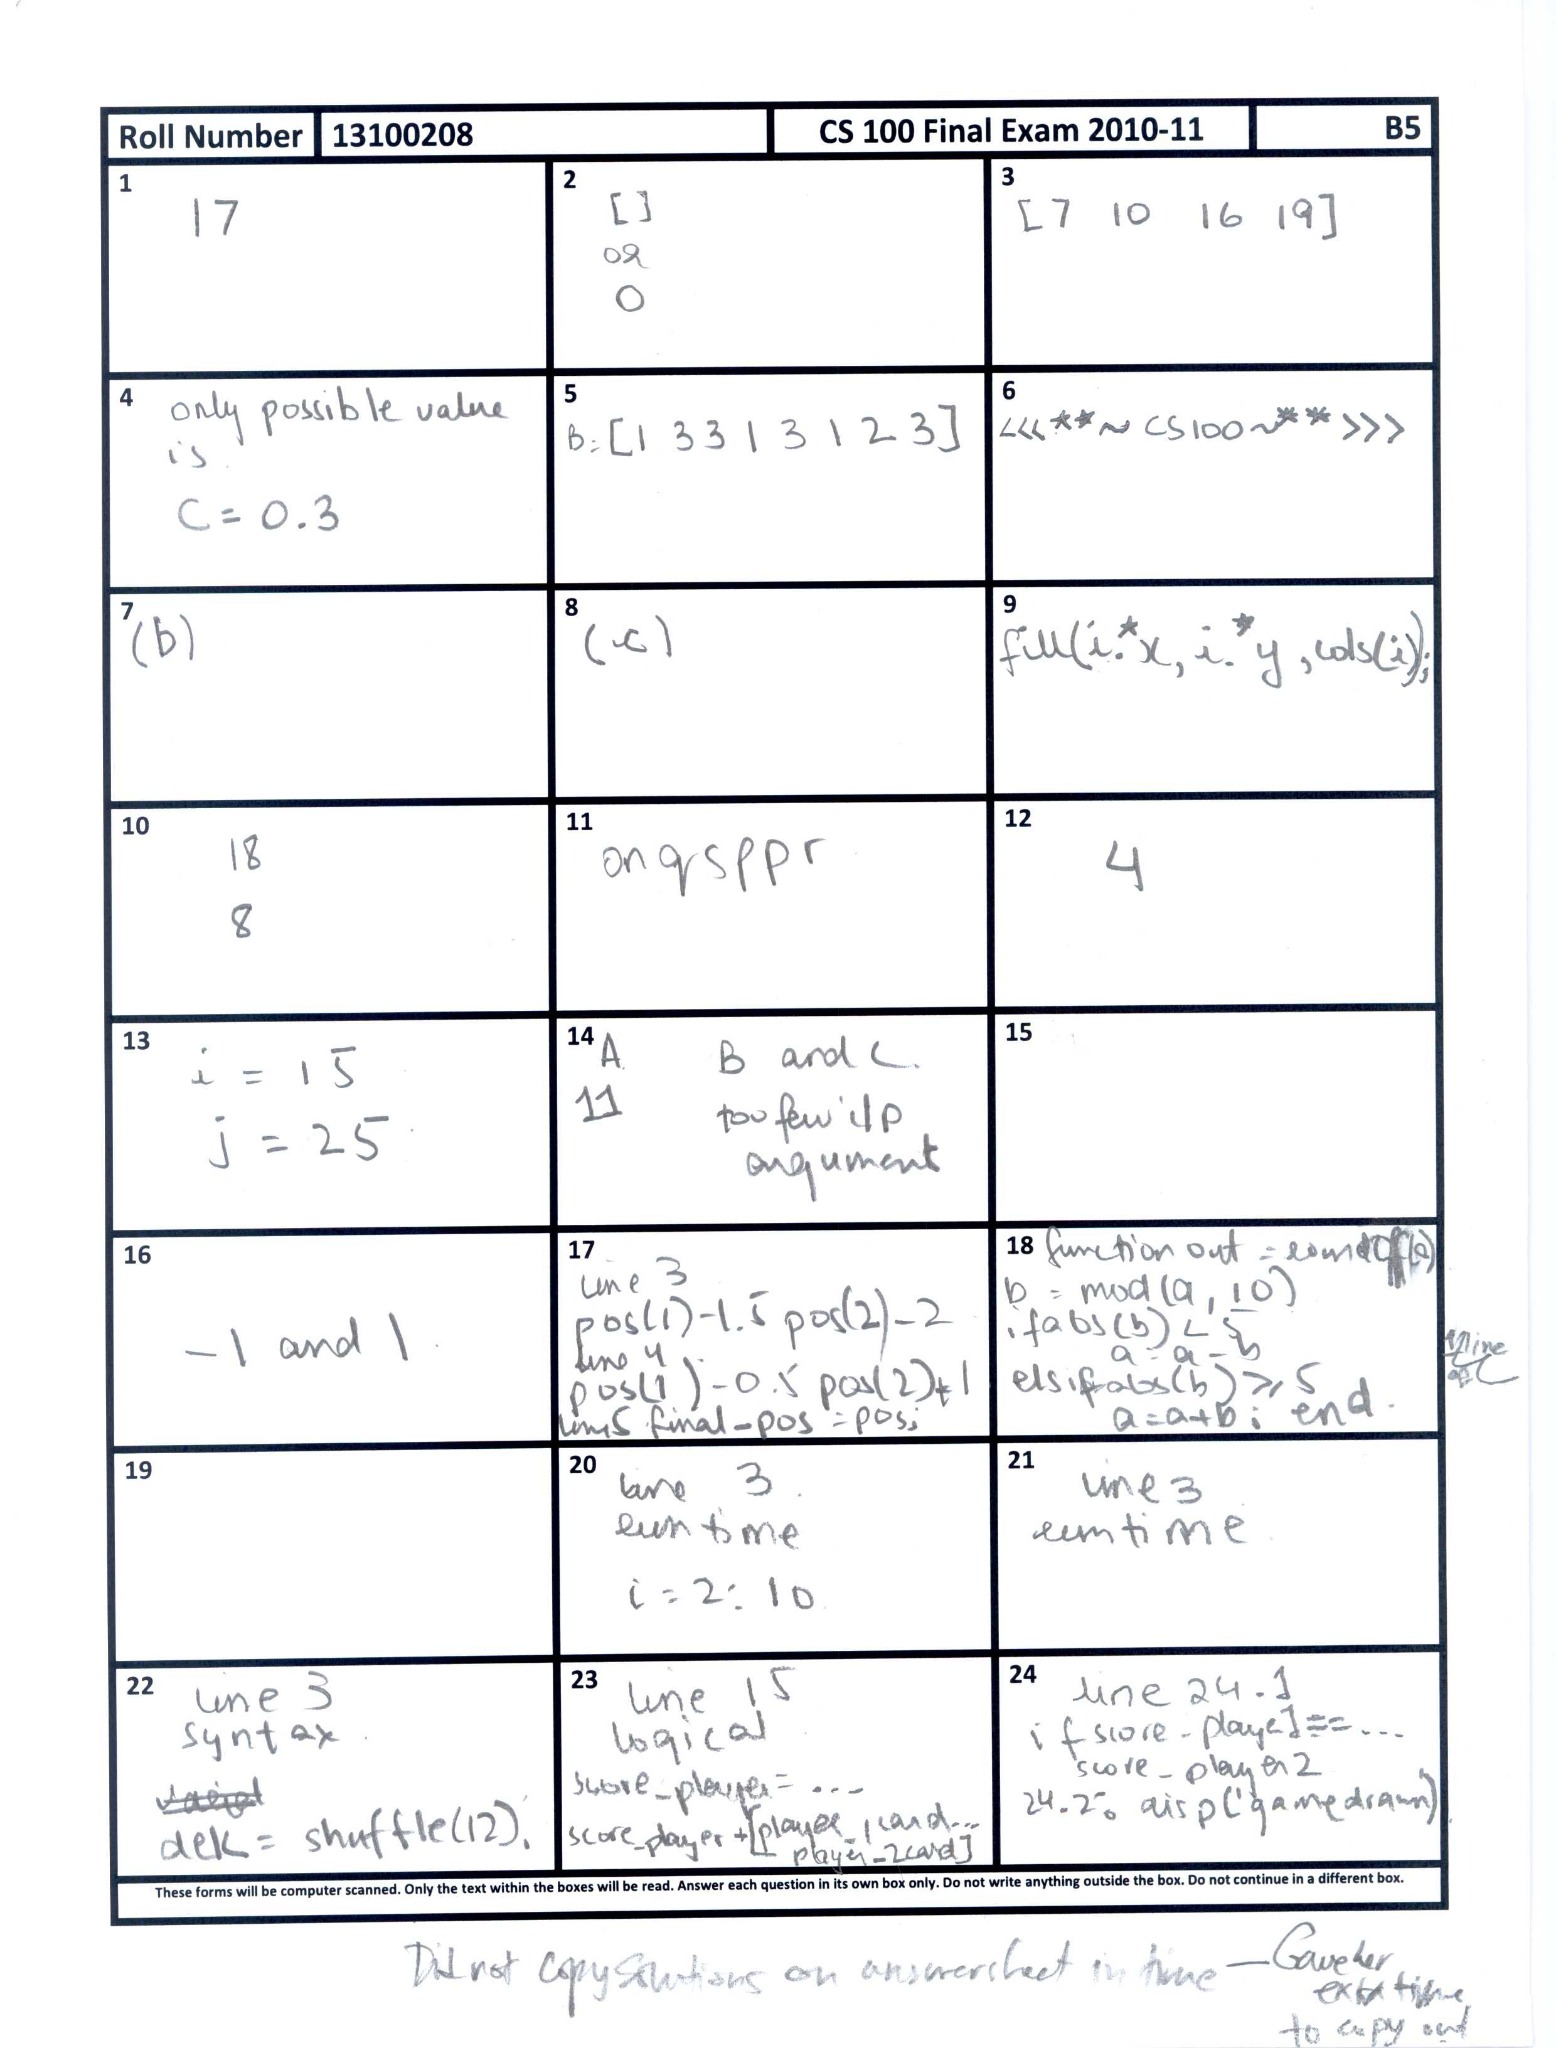 Roll Number 13100208 CS 100 Final Exam 2010-11 B5
1
17
2
[]
or
0
3
[7 10 16 19]
4
only possible value
is
C = 0.3
5
B = [1 3 3 1 3 1 2 3]
6
<<<**~CS100~**>>>
7
(b)
8
(c)
9
fill(i.*x, i.*y, cols(i));
10
18
8
11
onqsppr
12
4
13
i = 15
j = 25
14
A B and C.
11 too few i/p
argument
15
16
-1 and 1
17
line 3
pos(1)-1.5 pos(2)-2
line 4
pos(1)-0.5 pos(2)+1
line5 final-pos = pos;
18
function out = roundoff(a)
b = mod(a, 10)
if abs(b) < 5
a = a - b
elsif abs(b) >= 5
a=a+b; end.
19
20
line 3.
run time
i = 2: 10
21
line 3
runtime
22
line 3
syntax
dek = shuffle(12);
23
line 15
logical
score_player = ...
score_player + [player_1card...
player_2card]
24
line 24.1
if score-player1 == ...
score-player2
24.2: disp('game drawn')
These forms will be computer scanned. Only the text within the boxes will be read. Answer each question in its own box only. Do not write anything outside the box. Do not continue in a different box.
Did not copy solutions on answersheet in time — 
extra time
to copy out